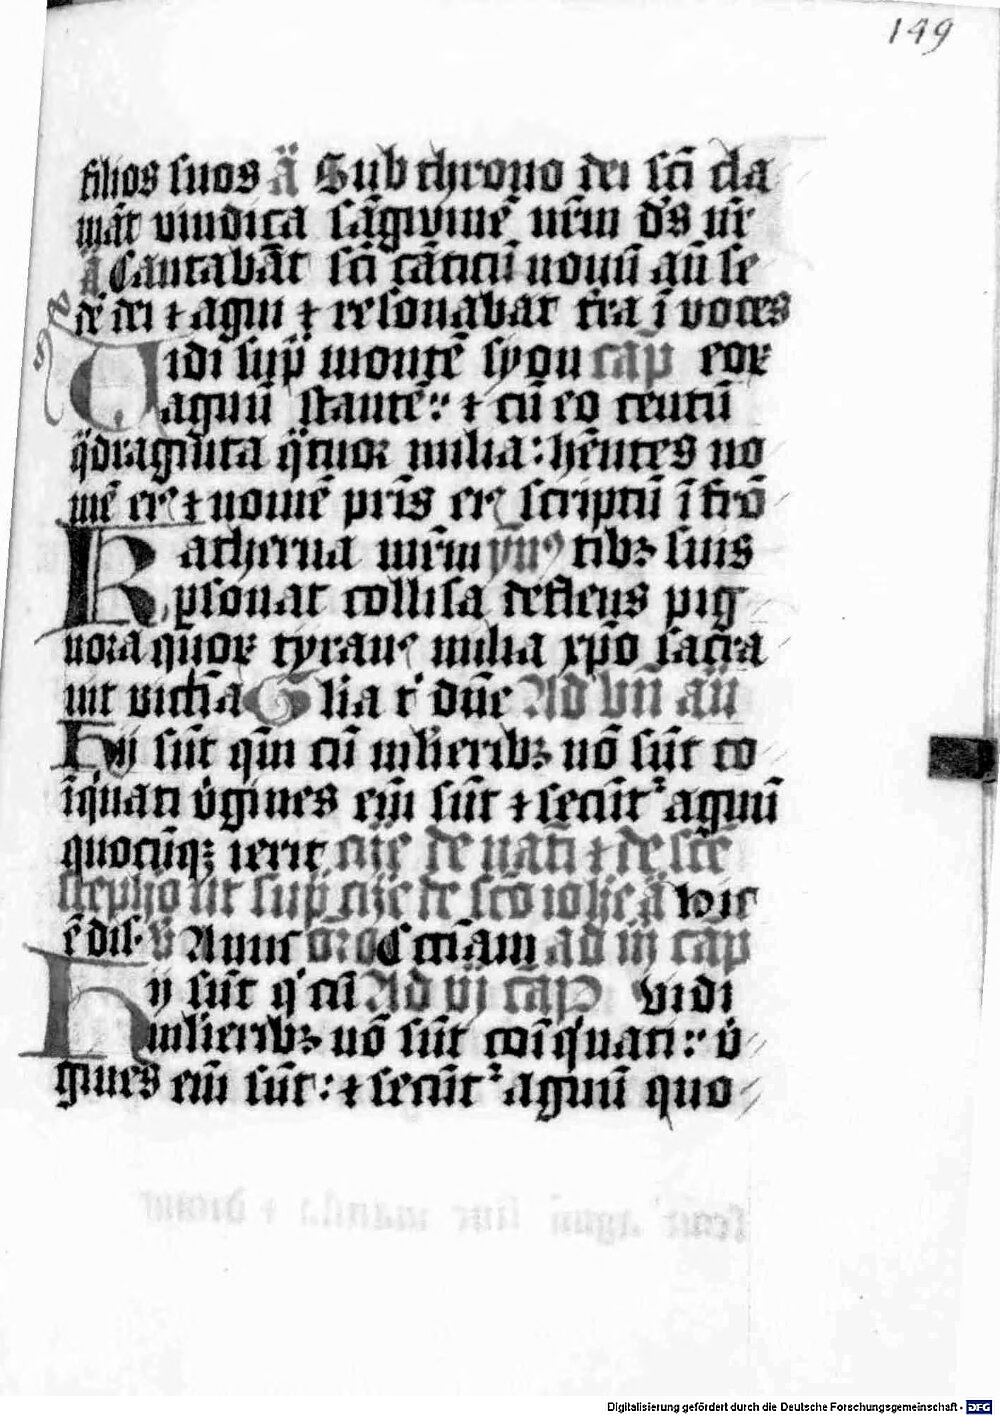 149
filios suos ā Sub throno dei sc̄i cla
māt vindica sāguinē nr̄m ds̄ nr̄
ā Cantabāt sc̄i cāticū novū an̄ se
dē dei ⁊ agni ⁊ resonabat tr̄a ī voces
Vidi sup̄ montē syon cap̄ eoꝝ
agnū stantē: ⁊ cū eo centū
q̈dragīta q̈tuor milia: hn̄tes no
mē eiꝰ ⁊ nomē pr̄is eiꝰ scriptū ī frō
Katherua mr̄m ympnꝰ tibꝫ suis
ꝑsonat collisa deflens pig
nora quoꝝ tyrannꝰ milia xp̄o sacra
vit victīa Glīa t̄ dn̄e Ad bn̄ an̄
Hij sūt qui cū mlieribꝫ nō sūt co
īquati v̄gines em̄ sūt ⁊ secūtʳ agnū
quocūqꝫ ierit aīe de nati ⁊ de sc̄o
stephō ut sup̄ aīe de sc̄o ioh̄e ā
ē dis̄ v̄ Anni ad iij cap̄
Hij sūt q̇ cū Ad vj cap̄ Vidi
mlieribꝫ nō sūt coīquati: v̄
gines em̄ sūt: ⁊ secūtʳ agnū quo
Digitalisierung gefördert durch die Deutsche Forschungsgemeinschaft - DFG